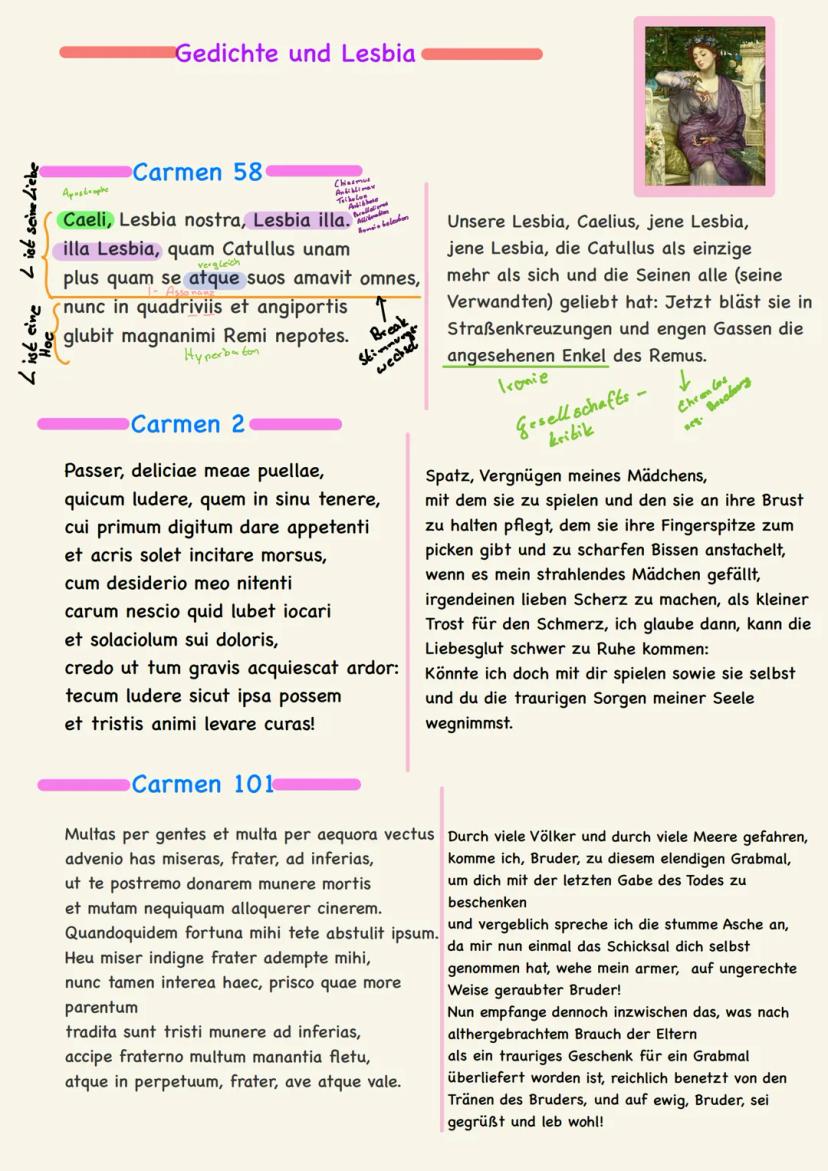 Gedichte und Lesbia
Carmen 58
Apostrophe
Chiasmus
Antiklimax
Trikolon
Antithese
Parallelismus
Alliteration
Homoioteleuton
Caeli, Lesbia nostra, Lesbia illa.
illa Lesbia, quam Catullus unam
vergleich
plus quam se atque suos amavit omnes,
i- Assonanz
nunc in quadriviis et angiportis
glubit magnanimi Remi nepotes.
Hyperbaton
L ist seine Liebe
L ist eine
Hoe
Break
Stimmungs-
wechsel
Unsere Lesbia, Caelius, jene Lesbia,
jene Lesbia, die Catullus als einzige
mehr als sich und die Seinen alle (seine
Verwandten) geliebt hat: Jetzt bläst sie in
Straßenkreuzungen und engen Gassen die
angesehenen Enkel des Remus.
Ironie
gesellschafts-
kritik
Carmen 2
Passer, deliciae meae puellae,
quicum ludere, quem in sinu tenere,
cui primum digitum dare appetenti
et acris solet incitare morsus,
cum desiderio meo nitenti
carum nescio quid lubet iocari
et solaciolum sui doloris,
credo ut tum gravis acquiescat ardor:
tecum ludere sicut ipsa possem
et tristis animi levare curas!
Spatz, Vergnügen meines Mädchens,
mit dem sie zu spielen und den sie an ihre Brust
zu halten pflegt, dem sie ihre Fingerspitze zum
picken gibt und zu scharfen Bissen anstachelt,
wenn es mein strahlendes Mädchen gefällt,
irgendeinen lieben Scherz zu machen, als kleiner
Trost für den Schmerz, ich glaube dann, kann die
Liebesglut schwer zu Ruhe kommen:
Könnte ich doch mit dir spielen sowie sie selbst
und du die traurigen Sorgen meiner Seele
wegnimmst.
Carmen 101
Multas per gentes et multa per aequora vectus
advenio has miseras, frater, ad inferias,
ut te postremo donarem munere mortis
et mutam nequiquam alloquerer cinerem.
Quandoquidem fortuna mihi tete abstulit ipsum.
Heu miser indigne frater adempte mihi,
nunc tamen interea haec, prisco quae more
parentum
tradita sunt tristi munere ad inferias,
accipe fraterno multum manantia fletu,
atque in perpetuum, frater, ave atque vale.
Durch viele Völker und durch viele Meere gefahren,
komme ich, Bruder, zu diesem elendigen Grabmal,
um dich mit der letzten Gabe des Todes zu
beschenken
und vergeblich spreche ich die stumme Asche an,
da mir nun einmal das Schicksal dich selbst
genommen hat, wehe mein armer, auf ungerechte
Weise geraubter Bruder!
Nun empfange dennoch inzwischen das, was nach
althergebrachtem Brauch der Eltern
als ein trauriges Geschenk für ein Grabmal
überliefert worden ist, reichlich benetzt von den
Tränen des Bruders, und auf ewig, Bruder, sei
gegrüßt und leb wohl!